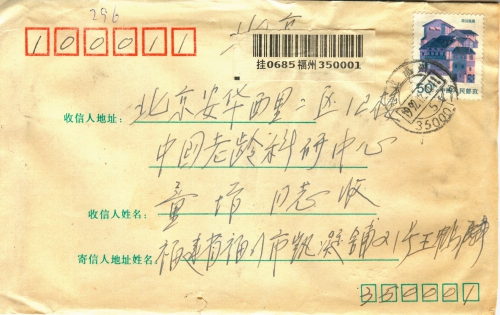 296
100011
北京
挂0685福州350001
50 中国人民邮政
350001
收信人地址: 北京安华西里二区12楼
中国老龄科研中心
收信人姓名: 童 同志收
寄信人地址姓名: 福建省福州市凯凝铺21号王
350001